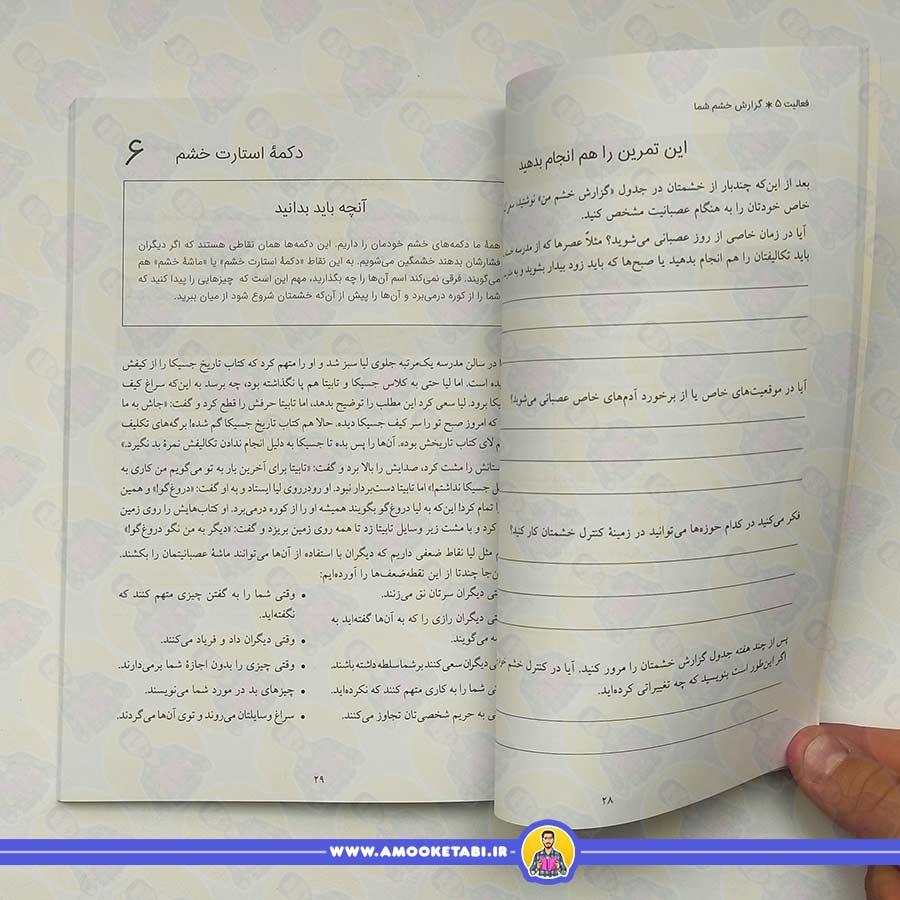 فعالیت ۵ * گزارش خشم شما
این تمرین را هم انجام بدهید
بعد از این‌که چندبار از خشمتان در جدول «گزارش خشم من» نوشتید،
خاص خودتان را به هنگام عصبانیت مشخص کنید.
آیا در زمان خاصی از روز عصبانی می‌شوید؟ مثلاً عصرها که از مدرسه
باید تکالیفتان را هم انجام بدهید یا صبح‌ها که باید زود بیدار بشوید و به
آیا در موقعیت‌های خاص یا از برخورد آدم‌های خاص عصبانی می‌شوید؟
فکر می‌کنید در کدام حوزه‌ها می‌توانید در زمینهٔ کنترل خشمتان کار کنید؟
پس از چند هفته جدول گزارش خشمتان را مرور کنید. آیا در کنترل خشم
اگر این‌طور است بنویسید که چه تغییراتی کرده‌اید.
۲۸
۶ دکمهٔ استارت خشم
آنچه باید بدانید
همهٔ ما دکمه‌های خشم خودمان را داریم. این دکمه‌ها همان نقاطی هستند که اگر دیگران
فشارشان بدهند خشمگین می‌شویم. به این نقاط «دکمهٔ استارت خشم» یا «ماشهٔ خشم» هم
می‌گویند. فرقی نمی‌کند اسم آن‌ها را چه بگذارید، مهم این است که چیزهایی را پیدا کنید که
شما را از کوره درمی‌برد و آن‌ها را پیش از آن‌که خشمتان شروع شود از میان ببرید.
در سالن مدرسه یک‌مرتبه جلوی لیا سبز شد و او را متهم کرد که کتاب تاریخ جسیکا را از کیفش
است. اما لیا حتی به کلاس جسیکا و تابیتا هم پا نگذاشته بود، چه برسد به این‌که سراغ کیف
برود. لیا سعی کرد این مطلب را توضیح بدهد، اما تابیتا حرفش را قطع کرد و گفت: «جاش به ما
که امروز صبح تو را سر کیف جسیکا دیده. حالا هم کتاب تاریخ جسیکا گم شده! برگه‌های تکلیف
لای کتاب تاریخش بوده. آن‌ها را پس بده تا جسیکا به دلیل انجام ندادن تکالیفش نمرهٔ بد نگیرد.»
را مشت کرد، صدایش را بالا برد و گفت: «تابیتا برای آخرین بار به تو می‌گویم من کاری به
جسیکا نداشتم!» اما تابیتا دست‌بردار نبود. او رودرروی لیا ایستاد و به او گفت: «دروغ‌گو!» و همین
را تمام کرد! این‌که به لیا دروغ‌گو بگویند همیشه او را از کوره درمی‌برد. او کتاب‌هایش را روی زمین
کرد و با مشت زیر وسایل تابیتا زد تا همه روی زمین بریزد و گفت: «دیگر به من نگو دروغ‌گو!»
مثل لیا نقاط ضعفی داریم که دیگران با استفاده از آن‌ها می‌توانند ماشهٔ عصبانیتمان را بکشند.
چندتا از این نقطه‌ضعف‌ها را آورده‌ایم:
دیگران سرتان نق می‌زنند.
دیگران رازی را که به آن‌ها گفته‌اید به
می‌گویند.
دیگران سعی کنند بر شما سلطه داشته باشند.
شما را به کاری متهم کنند که نکرده‌اید.
به حریم شخصی‌تان تجاوز می‌کنند.
• وقتی شما را به گفتن چیزی متهم کنند که
نگفته‌اید.
• وقتی دیگران داد و فریاد می‌کنند.
• وقتی چیزی را بدون اجازهٔ شما برمی‌دارند.
• چیزهای بد در مورد شما می‌نویسند.
• سراغ وسایلتان می‌روند و توی آن‌ها می‌گردند.
۲۹
WWW.AMOOKETABI.IR